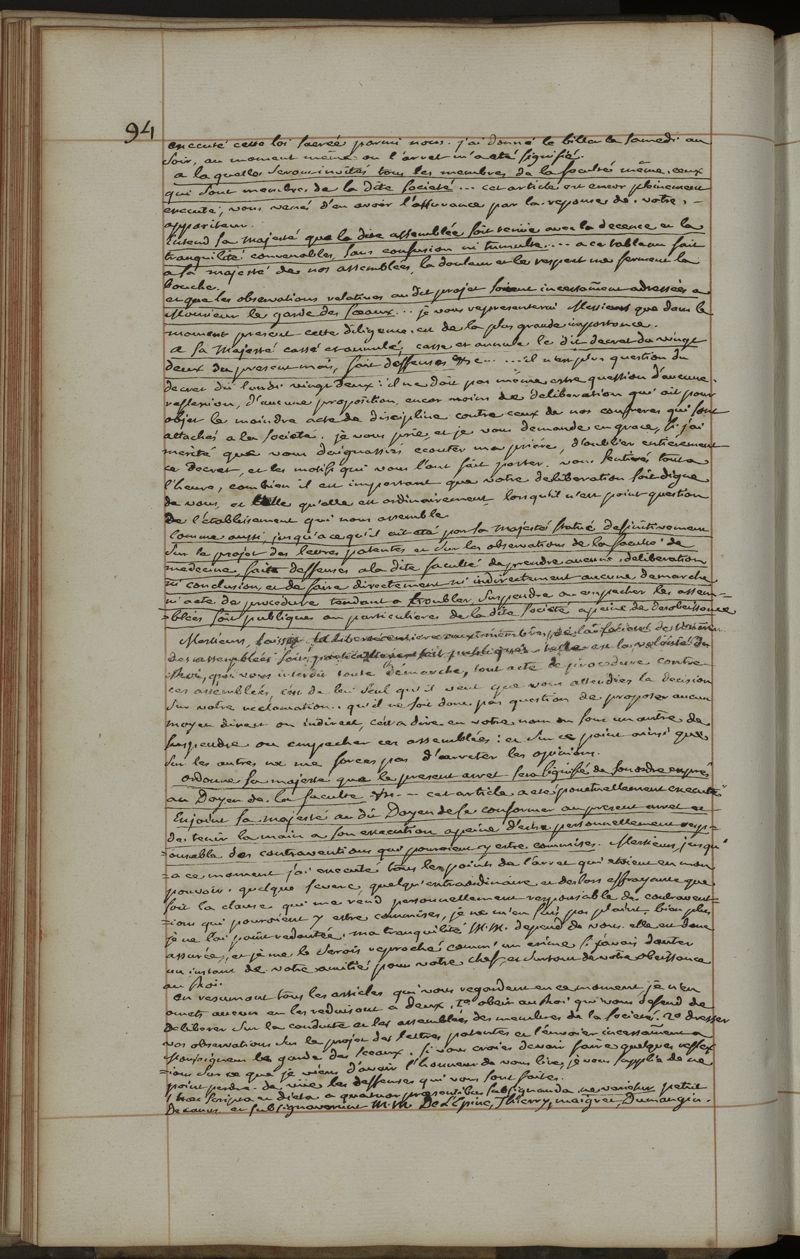 94
executé cette loi sacrée parmi nous. j'ai donné le billet le samedi au
soir, au moment même ou l'arret m'a eté signifié.
a la quelle seront invités tous les membres de la faculté même ceux
qui sont membres de la dite societé ... cet article est encor pleinement
executé, vous venés d'en avoir l'assurance par la reponse de votre
appariteur.
Entend sa majesté que la dite assemblée soit tenüe avec la decence et la
tranquilité convenables, sans confusion ni tumulte .... a ce tableau fait
a sa majesté de nos assemblées, la douleur et le respect me ferment la
bouche.
et que les observations relatives au dit projet soient incessament adressées a
Monsieur le garde des sceaux ... je vous representerai Messieurs que dans le
moment present cette diligence est de la plus grande importance.
a sa Majesté cassé et annulé, casse et annule le dit decret du vingt
deux du present mois, fait deffenses &c ..... il n'est plus question du
decret du lundi vingt deux: il ne doit pas même estre question d'aucune
reflexion, d'aucune proposition, encor moins de deliberation qui ait pour
objet le moindre acte de discipline contre ceux de nos confreres qui sont
attachés a la societé. je vous prie, et je vous demande en grace, si j'ai
merité que vous daignassiés ecouter ma priere, d'oublier entierement
ce decret, et les motifs qui vous l'ont fait porter. vous sentirés tout a
l'heure, combien il est important que votre deliberation soit digne
de vous, et telle qu'elle est ordinairement lorsqu'il n'est point question
de l'etablissement qui nous assemble.
Comme aussi, jusqu'a ce qu'il ait eté par sa majesté statué deffinitivement
sur le projet des lettres patentes et sur les observations de la faculté de
medecine, fait deffenses a la dite faculté de prendre aucune deliberation
ni conclusion, et de faire directement ni indirectement aucune demarche
ni acte de procedure tendant a troubler, suspendre ou empecher les assem-
-blées soit publiques ou particulieres de la dite societé a peine de desobeissance
Messieurs, laissés la liberté entiere aux membres de la societé de tenir
des assemblées soit particulieres soit publiques telle est la volonté du
Roi, qui vous interdit toute demarche, tout acte de procedure contre
ces assemblées, c'est de lui seul qu'il veut que vous attendiés la decision
sur votre reclamation. qu'il ne soit donc pas question de proposer aucun
moyen direct ou indirect, c'est a dire en votre nom ou sous un autre de
suspendre ou empecher ces assemblées: et sur ce point ainsi que
sur les autres ne me forcés pas d'arreter les opinions.
ordonne sa majesté que le present arret sera signifié de son ordre exprès
au Doyen de la faculté &c. -- cet article a eté ponctuellement executé
Enjoint sa majesté au dit Doyen de se conformer au present arret et
de tenir la main a son execution a peine d'estre personnellement resp-
-onsable des contraventions qui pouroient y estre commises. Messieurs, jusqu'
-a ce moment j'ai executé tous les points de l'arret qui etoient en mon
pouvoir. quelque severe, quelqu'extraordinaire et des lors effrayante que
soit la clause qui me rend personnellement responsable des contravent-
-ions qui pouroient y estre commises, je ne m'en suis pas plaint, bien plus
je ne l'ai point redoutée. ma tranquilité M.M. depend de vous. elle est donc
assurée, et je me le serois reproché comme un crime si j'avais douter
un instant de votre amitié pour votre chef, et surtout de votre obeissance
au Roi.
En resumant tous les articles qui vous regardent en ce moment je n'en
omets aucun en les reduisant a deux, 1o obeir au Roi qui vous defend de
deliberer sur la conduite et les assemblées des membres de la societé. 2o dresser
vos observations sur le projet des lettres patentes et l'envoier incessament a
Monseigneur le garde des sceaux. si vous croiés devoir faire quelques reflex
-ions sur ce que je viens d'avoir l'honneur de vous lire, je vous supplie de ne
point perdre de vüe les deffenses qui vous sont faites.
haec scripta et dicta a quatuor praesentibus subsignanda ne varietur petiit
Decanus et subsignaverunt M.M. De L'Epine, Thierry, maigret, Dumangin.